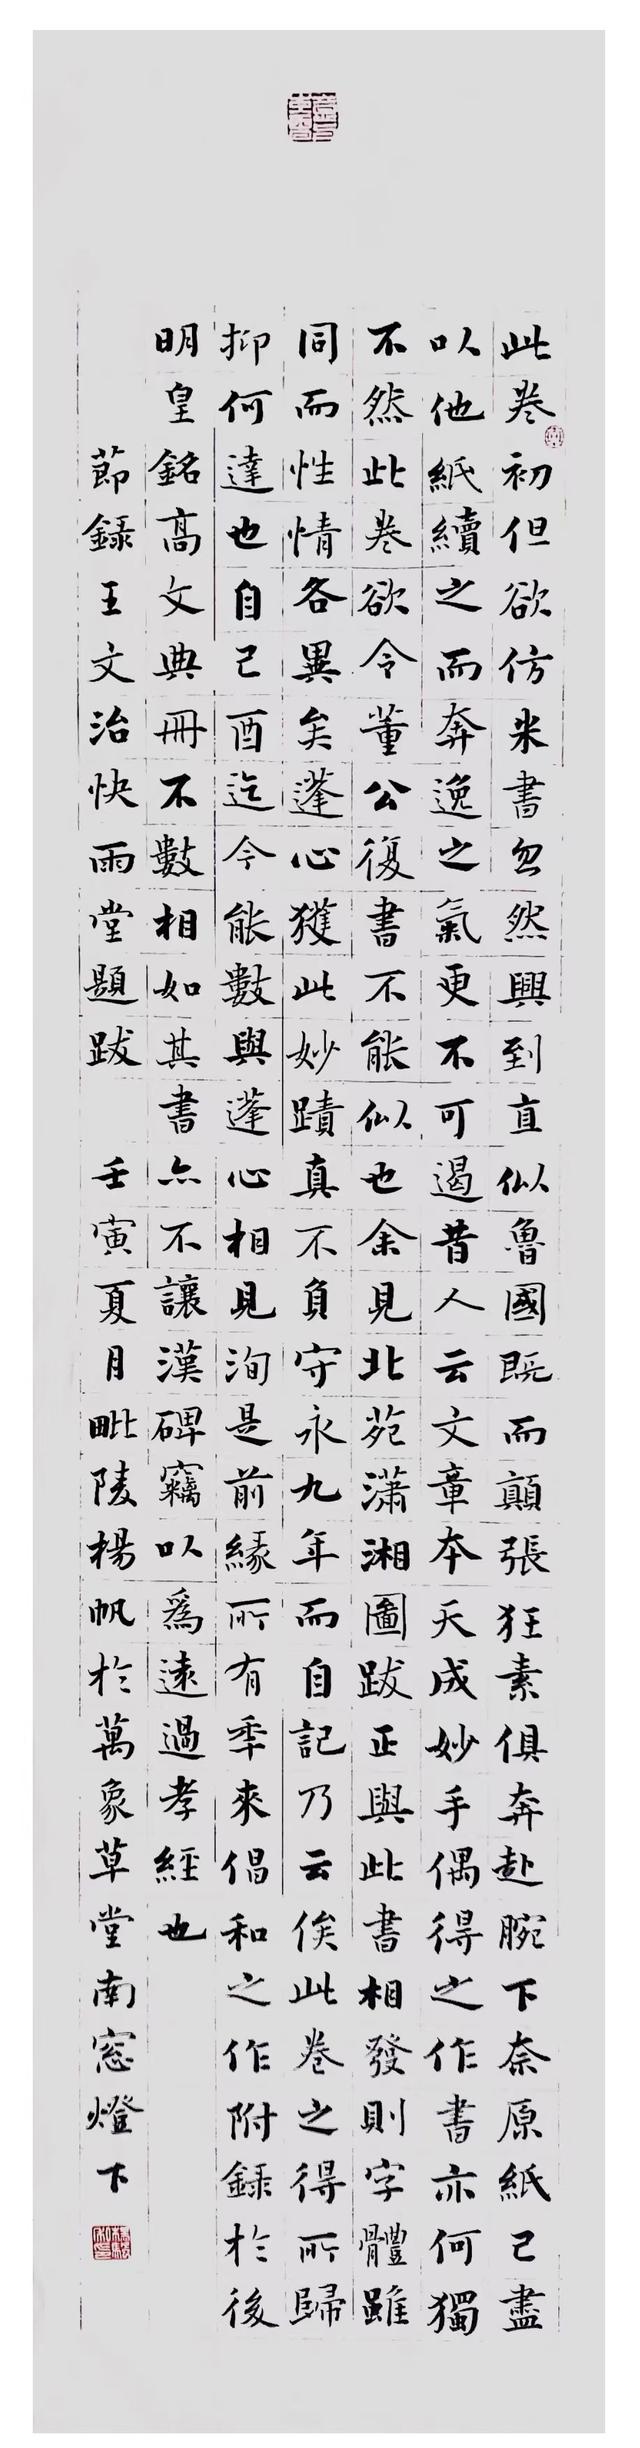 此卷初但欲仿米書忽然興到直似魯國既而顛張狂素俱奔赴腕下奈原紙已盡
以他紙續之而奔逸之氣更不可遏昔人云文章本天成妙手偶得之作書亦何獨
不然此卷欲令董公復書不能似也余見北苑瀟湘圖跋正與此書相發則字體雖
同而性情各異矣蓬心獲此妙蹟真不負守永九年而自記乃云俟此卷之得所歸
抑何達也自己酉迄今能數與蓬心相見洵是前緣所有年來倡和之作附錄於後
明皇銘高文典冊不數相如其書亦不讓漢碑竊以為遠過孝經也
節錄王文治快雨堂題跋 壬寅夏月毗陵楊帆於萬象草堂南窓燈下